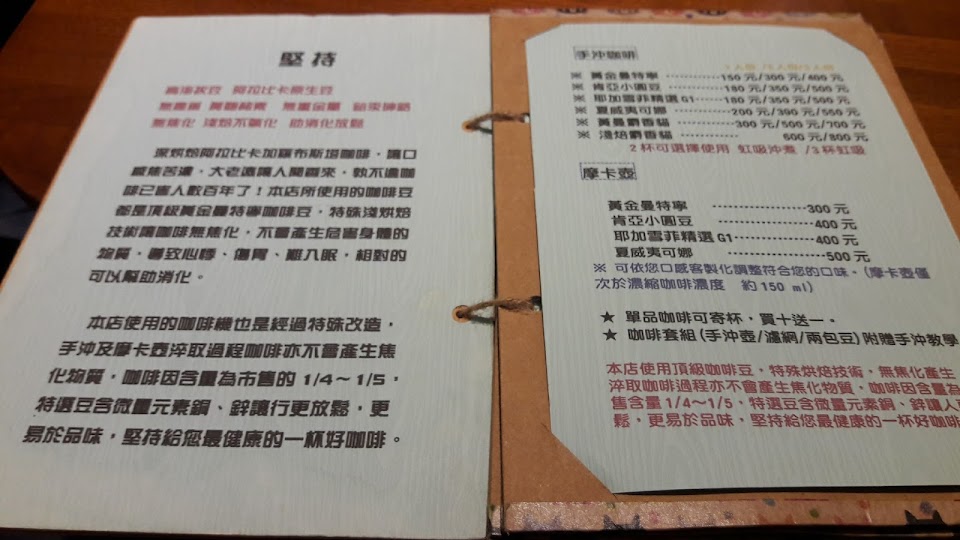 堅持
高海拔豆 阿拉比卡原生豆
無焦化 淺焙不碳化 助消化放鬆
深烘焙阿拉比卡加羅布斯塔咖啡,讓口
感焦苦澀,大老遠讓人聞香來,執不遺咖
啡已害人數百年了!本店所使用的咖啡豆
都是頂級黃金曼特寧咖啡豆,特殊淺烘焙
技術讓咖啡無焦化,不會產生危害身體的
物質,導致心悸、傷胃、難入眠,相對的
可以幫助消化。
本店使用的咖啡機也是經過特殊改造,
手沖及摩卡壺淬取過程咖啡亦不會產生焦
化物質,咖啡因含量為市售的 1/4~1/5,
特選豆含微量元素銅、鋅讓行更放鬆,更
易於品味,堅持給您最健康的一杯好咖啡。
手沖咖啡
1人份 /2人份/3人份
※ 黃金曼特寧 ············150 元/300 元/400 元
※ 肯亞小圓豆 ············180 元/350 元/500 元
※ 耶加雪菲精選 G1······180 元/350 元/500 元
※ 夏威夷可娜 ············200 元/390 元/550 元
※ 黃曼麝香貓 ············300 元/500 元/700 元
※ 淺焙麝香貓 ············ 600 元/800 元
2 杯可選擇使用 虹吸沖煮 /3 杯虹吸
摩卡壺
黃金曼特寧 ··················300 元
肯亞小圓豆 ··················400 元
耶加雪菲精選 G1··············400 元
夏威夷可娜 ··················500 元
※ 可依您口感客製化調整符合您的口味。(摩卡壺僅
次於濃縮咖啡濃度 約 150 ml)
★ 單品咖啡可寄杯,買十送一。
★ 咖啡套組(手沖壺/濾網/兩包豆)附贈手沖教學
本店使用頂級咖啡豆,特殊烘焙技術,無焦化產生
淬取咖啡過程亦不會產生焦化物質,咖啡因含量為
售含量 1/4~1/5,特選豆含微量元素銅、鋅讓人
鬆,更易於品味,堅持給您最健康的一杯好咖啡